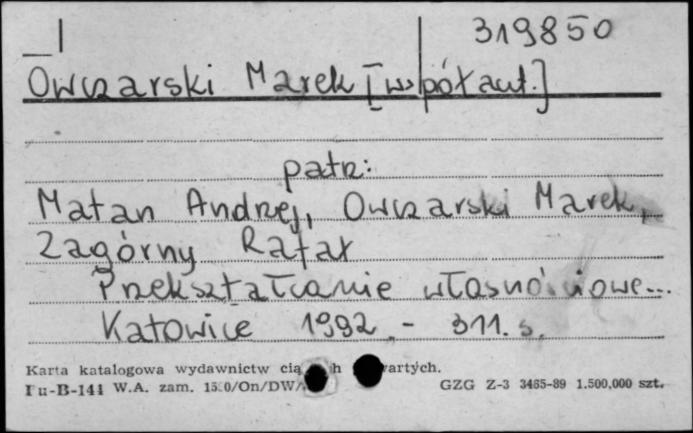 319850
Owczarski Marek [współaut.]
patrz:
Matan Andrzej, Owczarski Marek,
Zagórny Rafał
Przekształcanie własnościowe...
Katowice 1992 - 311 s.
Karta katalogowa wydawnictw
Pu-B-141 W.A. zam. GZG Z-3 3465-89 1.500,000 szt.